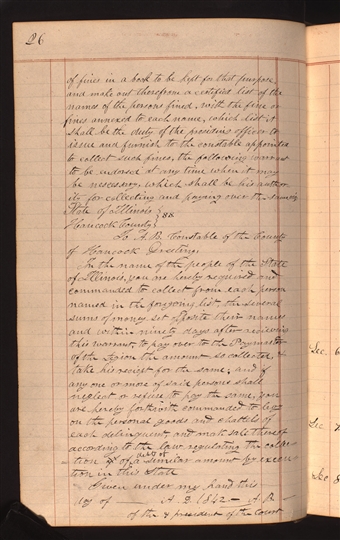 26
of fines in a book to be kept for that purpose,
and make out therefrom a certified list of the
names of the persons fined, with the fine or
fines annexed to each name, which list it
shall be the duty of the presiding officer to
issue and furnish to the constable appointed
to collect such fines, the following warrant
to be endorsed at any time when it may
be necessary, which shall be his author
ity for collecting and paying over the
State of Illinois } ss
Hancock County
To A.B. Constable of the County
of Hancock Greeting
In the name of the people of the State
of Illinois, you are hereby required and
commanded to collect from each person
named in the foregoing list, the several
sums of money set opposite their names
and within ninety days after receiving
this warrant, to pay over to the Paymaster
of the Legion the amount so collected, &
take his receipt for the same; and if
any one or more of said persons shall
neglect or refuse to pay the same, you
are hereby forthwith commanded to levy
on the personal goods and chattels of
each delinquent, and make sale thereof
according to the law, regulating the collec
debt of
tion of a similar amount by execu
tion in this State
Given under my hand this
day of — A.D. 1842 — A.B
of the & president of the Court
Sec. 6
Sec. 7
Sec 8